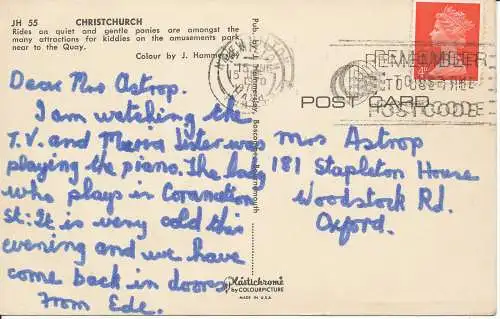 JH 55 CHRISTCHURCH
Rides on quiet and gentle ponies are amongst the
many attractions for kiddies on the amusements park
near to the Quay.
Colour by J. Hammersley
Dear Mrs Astrop.
I am watching the
T.V. and Maria Lister was
playing the piano. The lady
who plays in Coronation
St. It is very cold this
evening and we have
come back in doors
From Ede.
Pub. by J. Hammersley, Boscombe, Bournemouth
Plastichrome
by COLOURPICTURE
MADE IN U.S.A.
REMEMBER
TO USE THE
POSTCODE
POST CARD
Mrs Astrop
181 Stapleton House
Woodstock Rd.
Oxford.